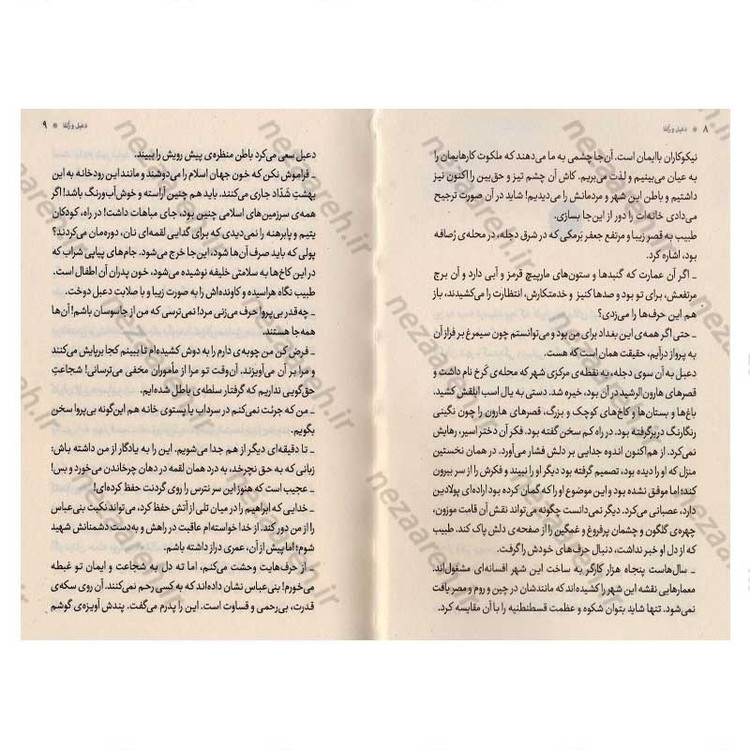 ۸ ● دعبل و زلفا
نیکوکاران باایمان است. آن‌جا چشمی به ما می‌دهند که ملکوت کارهایمان را
به عیان می‌بینیم و لذت می‌بریم. کاش آن چشم تیز و حق‌بین را اکنون نیز
داشتیم و باطن این شهر و مردمانش را می‌دیدیم! شاید در آن صورت ترجیح
می‌دادی خانه‌ات را دور از این‌جا بسازی.
طبیب به قصر زیبا و مرتفع جعفر بَرمکی که در شرق دجله، در محله‌ی رُصافه
بود، اشاره کرد.
ـ اگر آن عمارت که گنبدها و ستون‌های مارپیچ قرمز و آبی دارد و آن برج
مرتفعش، برای تو بود و صدها کنیز و خدمتکارش، انتظارت را می‌کشیدند، باز
هم این حرف‌ها را می‌زدی؟
ـ حتی اگر همه‌ی این بغداد برای من بود و می‌توانستم چون سیمرغ بر فراز آن
به پرواز درآیم، حقیقت همان است که هست.
دعبل به آن سوی دجله، به نقطه‌ی مرکزی شهر که محله‌ی کَرخ نام داشت و
قصرهای هارون‌الرشید در آن بود، خیره شد. دستی به یال اسب ابلقش کشید.
باغ‌ها و بستان‌ها و کاخ‌های کوچک و بزرگ، قصرهای هارون را چون نگینی
رنگارنگ دربرگرفته بود. در راه کم سخن گفته بود. فکر آن دختر اسیر، رهایش
نمی‌کرد. از هم‌اکنون اندوه جدایی بر دلش فشار می‌آورد. در همان نخستین
منزل که او را دیده بود، تصمیم گرفته بود دیگر او را نبیند و فکرش را از سر بیرون
کند؛ اما موفق نشده بود و این موضوع او را که گمان کرده بود اراده‌ای پولادین
دارد، عصبانی می‌کرد. دیگر نمی‌دانست چگونه می‌تواند نقش آن قامت موزون،
چهره‌ی گلگون و چشمان پرفروغ و غمگین را از صفحه‌ی دلش پاک کند. طبیب
که از دل او خبر نداشت، دنبال حرف‌های خودش را گرفت.
ـ سال‌هاست پنجاه هزار کارگر به ساخت این شهر افسانه‌ای مشغول‌اند.
معمارهایی نقشه این شهر را کشیده‌اند که مانندشان در چین و روم و مصر یافت
نمی‌شود. تنها شاید بتوان شکوه و عظمت قسطنطنیه را با آن مقایسه کرد.
دعبل و زلفا ● ۹
دعبل سعی می‌کرد باطن منظره‌ی پیش رویش را ببیند.
ـ فراموش نکن که خون جهان اسلام را می‌دوشند و مانند این رودخانه به این
بهشتِ شدّاد جاری می‌کنند. باید هم چنین آراسته و خوش‌آب‌ورنگ باشد! اگر
همه‌ی سرزمین‌های اسلامی چنین بود، جای مباهات داشت! در راه، کودکان
یتیم و پابرهنه را نمی‌دیدی که برای گدایی لقمه‌ای نان، دوره‌مان می‌کردند؟
پولی که باید صرف آن‌ها شود، این‌جا خرج می‌شود. جام‌های پیاپی شراب که
در این کاخ‌ها به سلامتی خلیفه نوشیده می‌شود، خون پدران آن اطفال است.
طبیب نگاه هراسیده و کاونده‌اش را به صورت زیبا و با صلابت دعبل دوخت.
ـ چه‌قدر بی‌پروا حرف می‌زنی مرد! نمی‌ترسی که من از جاسوسان باشم! آن‌ها
همه جا هستند.
ـ فرض کن من چوبه‌ی دارم را به دوش کشیده‌ام تا ببینم کجا برپایش می‌کنند
و مرا بر آن می‌آویزند. آن‌وقت تو مرا از مأموران مخفی می‌ترسانی! شجاعتِ
حق‌گویی نداریم که گرفتار سلطه‌ی باطل شده‌ایم.
ـ من که جرئت نمی‌کنم در سرداب یا پستوی خانه هم این‌گونه بی‌پروا سخن
بگویم.
ـ تا دقیقه‌ای دیگر از هم جدا می‌شویم. این را به یادگار از من داشته باش:
زبانی که به حق نچرخد، به درد همان لقمه در دهان چرخاندن می‌خورد و بس!
ـ عجیب است که هنوز این سر نترس را روی گردنت حفظ کرده‌ای!
ـ خدایی که ابراهیم را در میان تلی از آتش حفظ کرد، می‌تواند نکبت بنی‌عباس
را از من دور کند. از خدا خواسته‌ام عاقبت در راهش و به‌دست دشمنانش شهید
شوم؛ اما پیش از آن، عمری دراز داشته باشم.
ـ از حرف‌هایت وحشت می‌کنم، اما ته دل به شجاعت و ایمان تو غبطه
می‌خورم! بنی‌عباس نشان داده‌اند که به کسی رحم نمی‌کنند. آن روی سکه‌ی
قدرت، بی‌رحمی و قساوت است. این را پدرم می‌گفت. پندش آویزه‌ی گوشم
nezaareh.ir